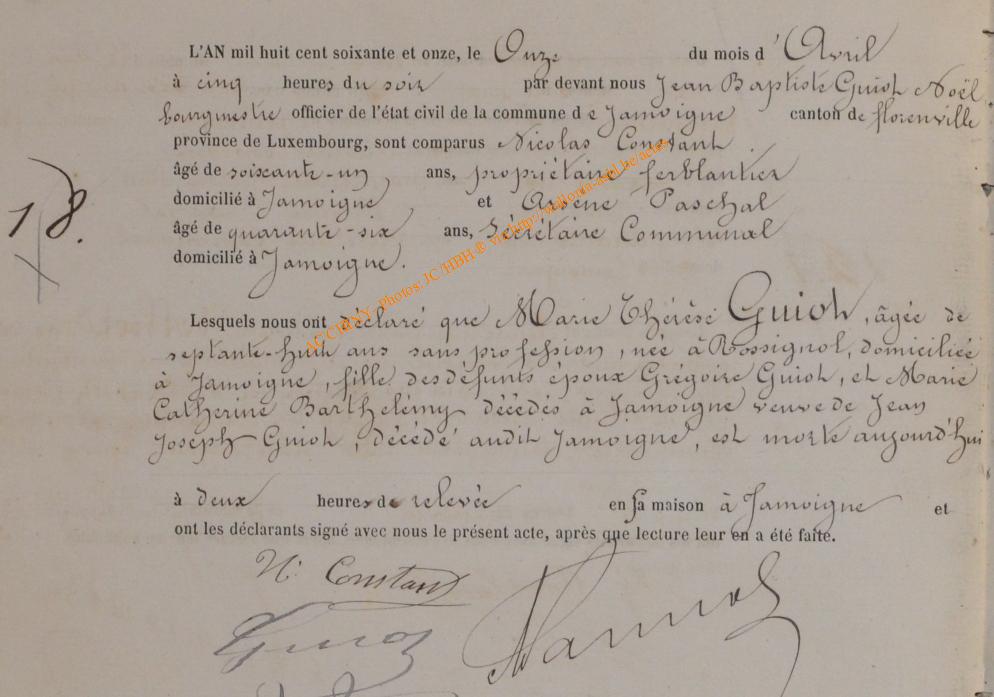 L'AN mil huit cent soixante et onze, le Onze du mois d'Avril
à cinq heures du soir par devant nous Jean Baptiste Guiot Noël
bourgmestre officier de l'état civil de la commune de Jamoigne canton de florenville
province de Luxembourg, sont comparus Nicolas Constant
âgé de soiscante-un ans, propriétaire ferblantier
domicilié à Jamoigne, et Arsène Paschal
âgé de quarante-six ans, sécrétaire Communal
domicilié à Jamoigne.
18.
Lesquels nous ont déclaré que Marie Thérèse Guiot, âgée de
septante-huit ans sans profession, née à Rossignol, domiciliée
à Jamoigne, fille des défunts époux Grégoire Guiot, et Marie
Catherine Barthelémy décédés à Jamoigne veuve de Jean
Joseph Guiot, décédé audit Jamoigne, est morte aujourd'hui
à deux heures de relevée en sa maison à Jamoigne et
ont les déclarants signé avec nous le présent acte, après que lecture leur en a été faite.
N. Constant
AC CHINY - Photos JC HBH ® via http://wallonia-asbl.be/actes